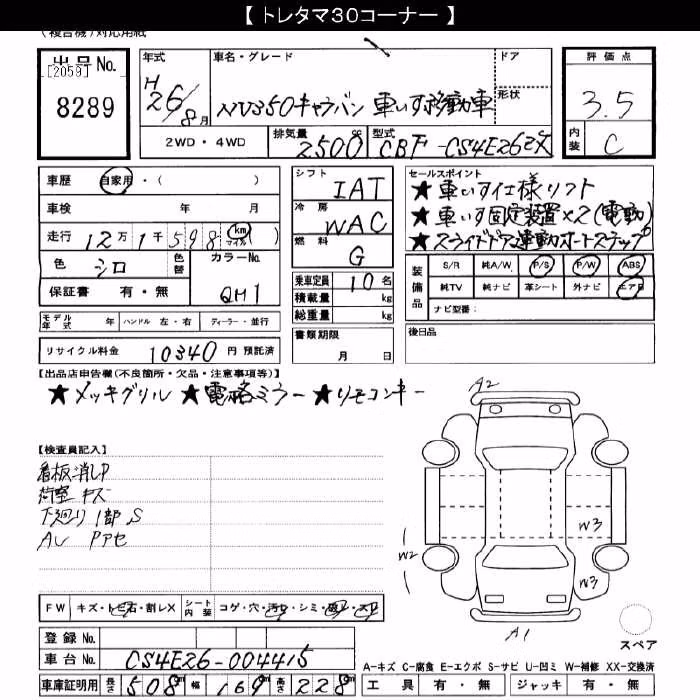 【 トレタマ30コーナー 】
(複合機)対応用紙
出品No.
[2059]
8289
年式
H
26/8月
車名・グレード
NV350キャラバン 車いす移動車
ドア
形状
評価点
3.5
内装
C
2WD・4WD
排気量
2500cc
型式
CBF-CS4E26改
車歴 自家用・( )
車検 年 月
走行 12万1千598 km マイル ( )
色 シロ
色替
カラーNo.
QM1
保証書 有・無
モデル年式 年 ハンドル 左・右 ディーラー・並行
リサイクル料金 10340 円 預託済
シフト
IAT
冷房
WAC
燃料
G
乗車定員 10名
積載量 kg
総重量 kg
書類期限
月 日
セールスポイント
★車いす仕様リフト
★車いす固定装置×2(電動)
★スライドドア連動オートステップ
装備品
S/R 純A/W P/S P/W ABS
純TV 純ナビ 革シート 外ナビ エアB
ナビ型番:
後日品
【出品店申告欄(不良箇所・欠品・注意事項等)】
★メッキグリル ★電格ミラー ★リモコンキー
【検査員記入】
看板消しP
荷室 キズ
下廻り 1部 S
A2
W3
W2
W3
A1
スペア
FW キズ・トビ石・割レX
シート内装 コゲ・穴・汚レ・シミ
登録 No.
車台 No. CS4E26-004415
車庫証明用 長さ 508cm 幅 169cm 高さ 228cm
A-キズ C-腐食 E-エクボ S-サビ U-凹ミ W-補修 XX-交換済
工具 有・無 ジャッキ 有・無